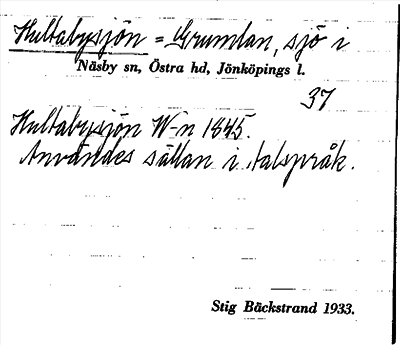 Hultabysjön = Grumlan, sjö i
Näsby sn, Östra hd, Jönköpings l.
37
Hultabysjön W-n 1845.
Användes sällan i talspråk.
Stig Bäckstrand 1933.